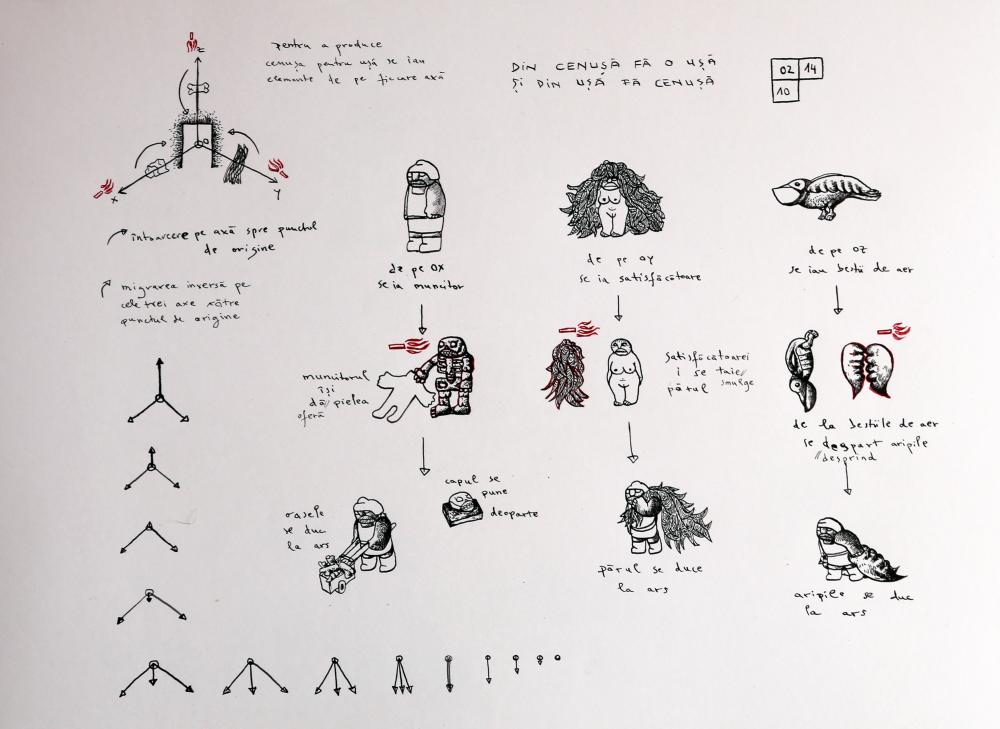 z
pentru a produce
cenușa pentru ușă se iau
elemente de pe fiecare axă
DIN CENUȘĂ FĂ O UȘĂ
ȘI DIN UȘĂ FĂ CENUȘĂ
02 14
10
x
y
întoarcere pe axă spre punctul
de origine
migrarea inversă pe
cele trei axe către
punctul de origine
de pe OX
se ia muncitor
de pe OY
se ia satisfăcătoare
de pe OZ
se iau bestii de aer
muncitorul
își
dă // pielea
oferă
satisfăcătoarei
i se taie //
părul smulge
de la bestiile de aer
se despart aripile
// desprind
oasele
se duc
la ars
capul se
pune
deoparte
părul se duce
la ars
aripile se duc
la ars